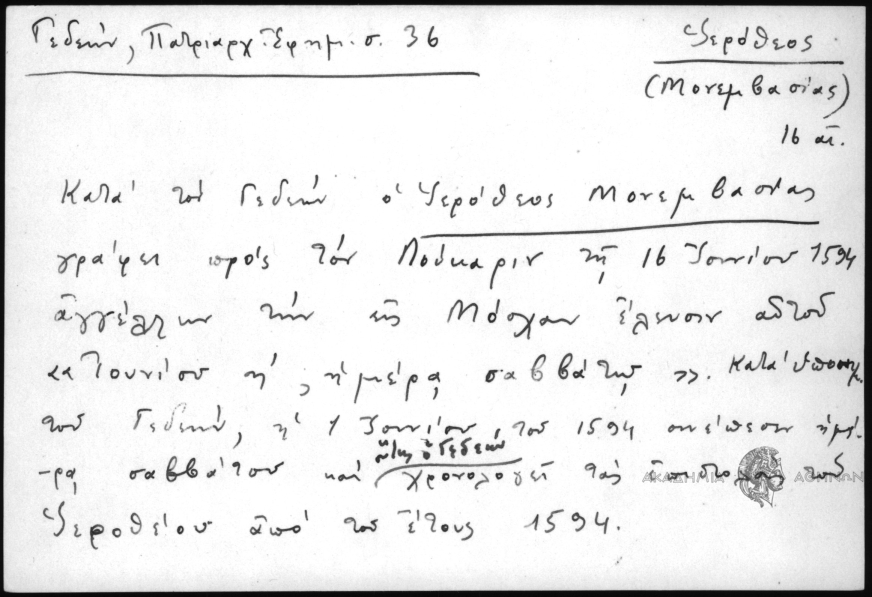 Γεδεών, Πατριαρχ. Ἐφημ. σ. 36
Ἱερόθεος
(Μονεμβασίας)
16 αἰ.
Κατά τόν Γεδεών ὁ Ἱερόθεος Μονεμβασίας
γράφει πρός τόν Λούκαριν τῇ 16 Ἰουνίου 1594
ἀγγέλων τήν εἰς Μόσχαν ἔλευσιν αὐτοῦ
κα Ἰουνίου ἡμέρᾳ σαββάτῳ ». Κατά ὑποσημ.
τοῦ Γεδεών, ἡ 1 Ἰουνίου τοῦ 1594 συνέπεσεν ἡμέ-
-ρᾳ σαββάτου καί οὕτως ὁ Γεδεών χρονολογεῖ τάς ἐπιστολάς τοῦ
Ἱεροθέου ἀπό τοῦ ἔτους 1594.
ΑΚΑΔΗΜΙΑ ΑΘΗΝΩΝ